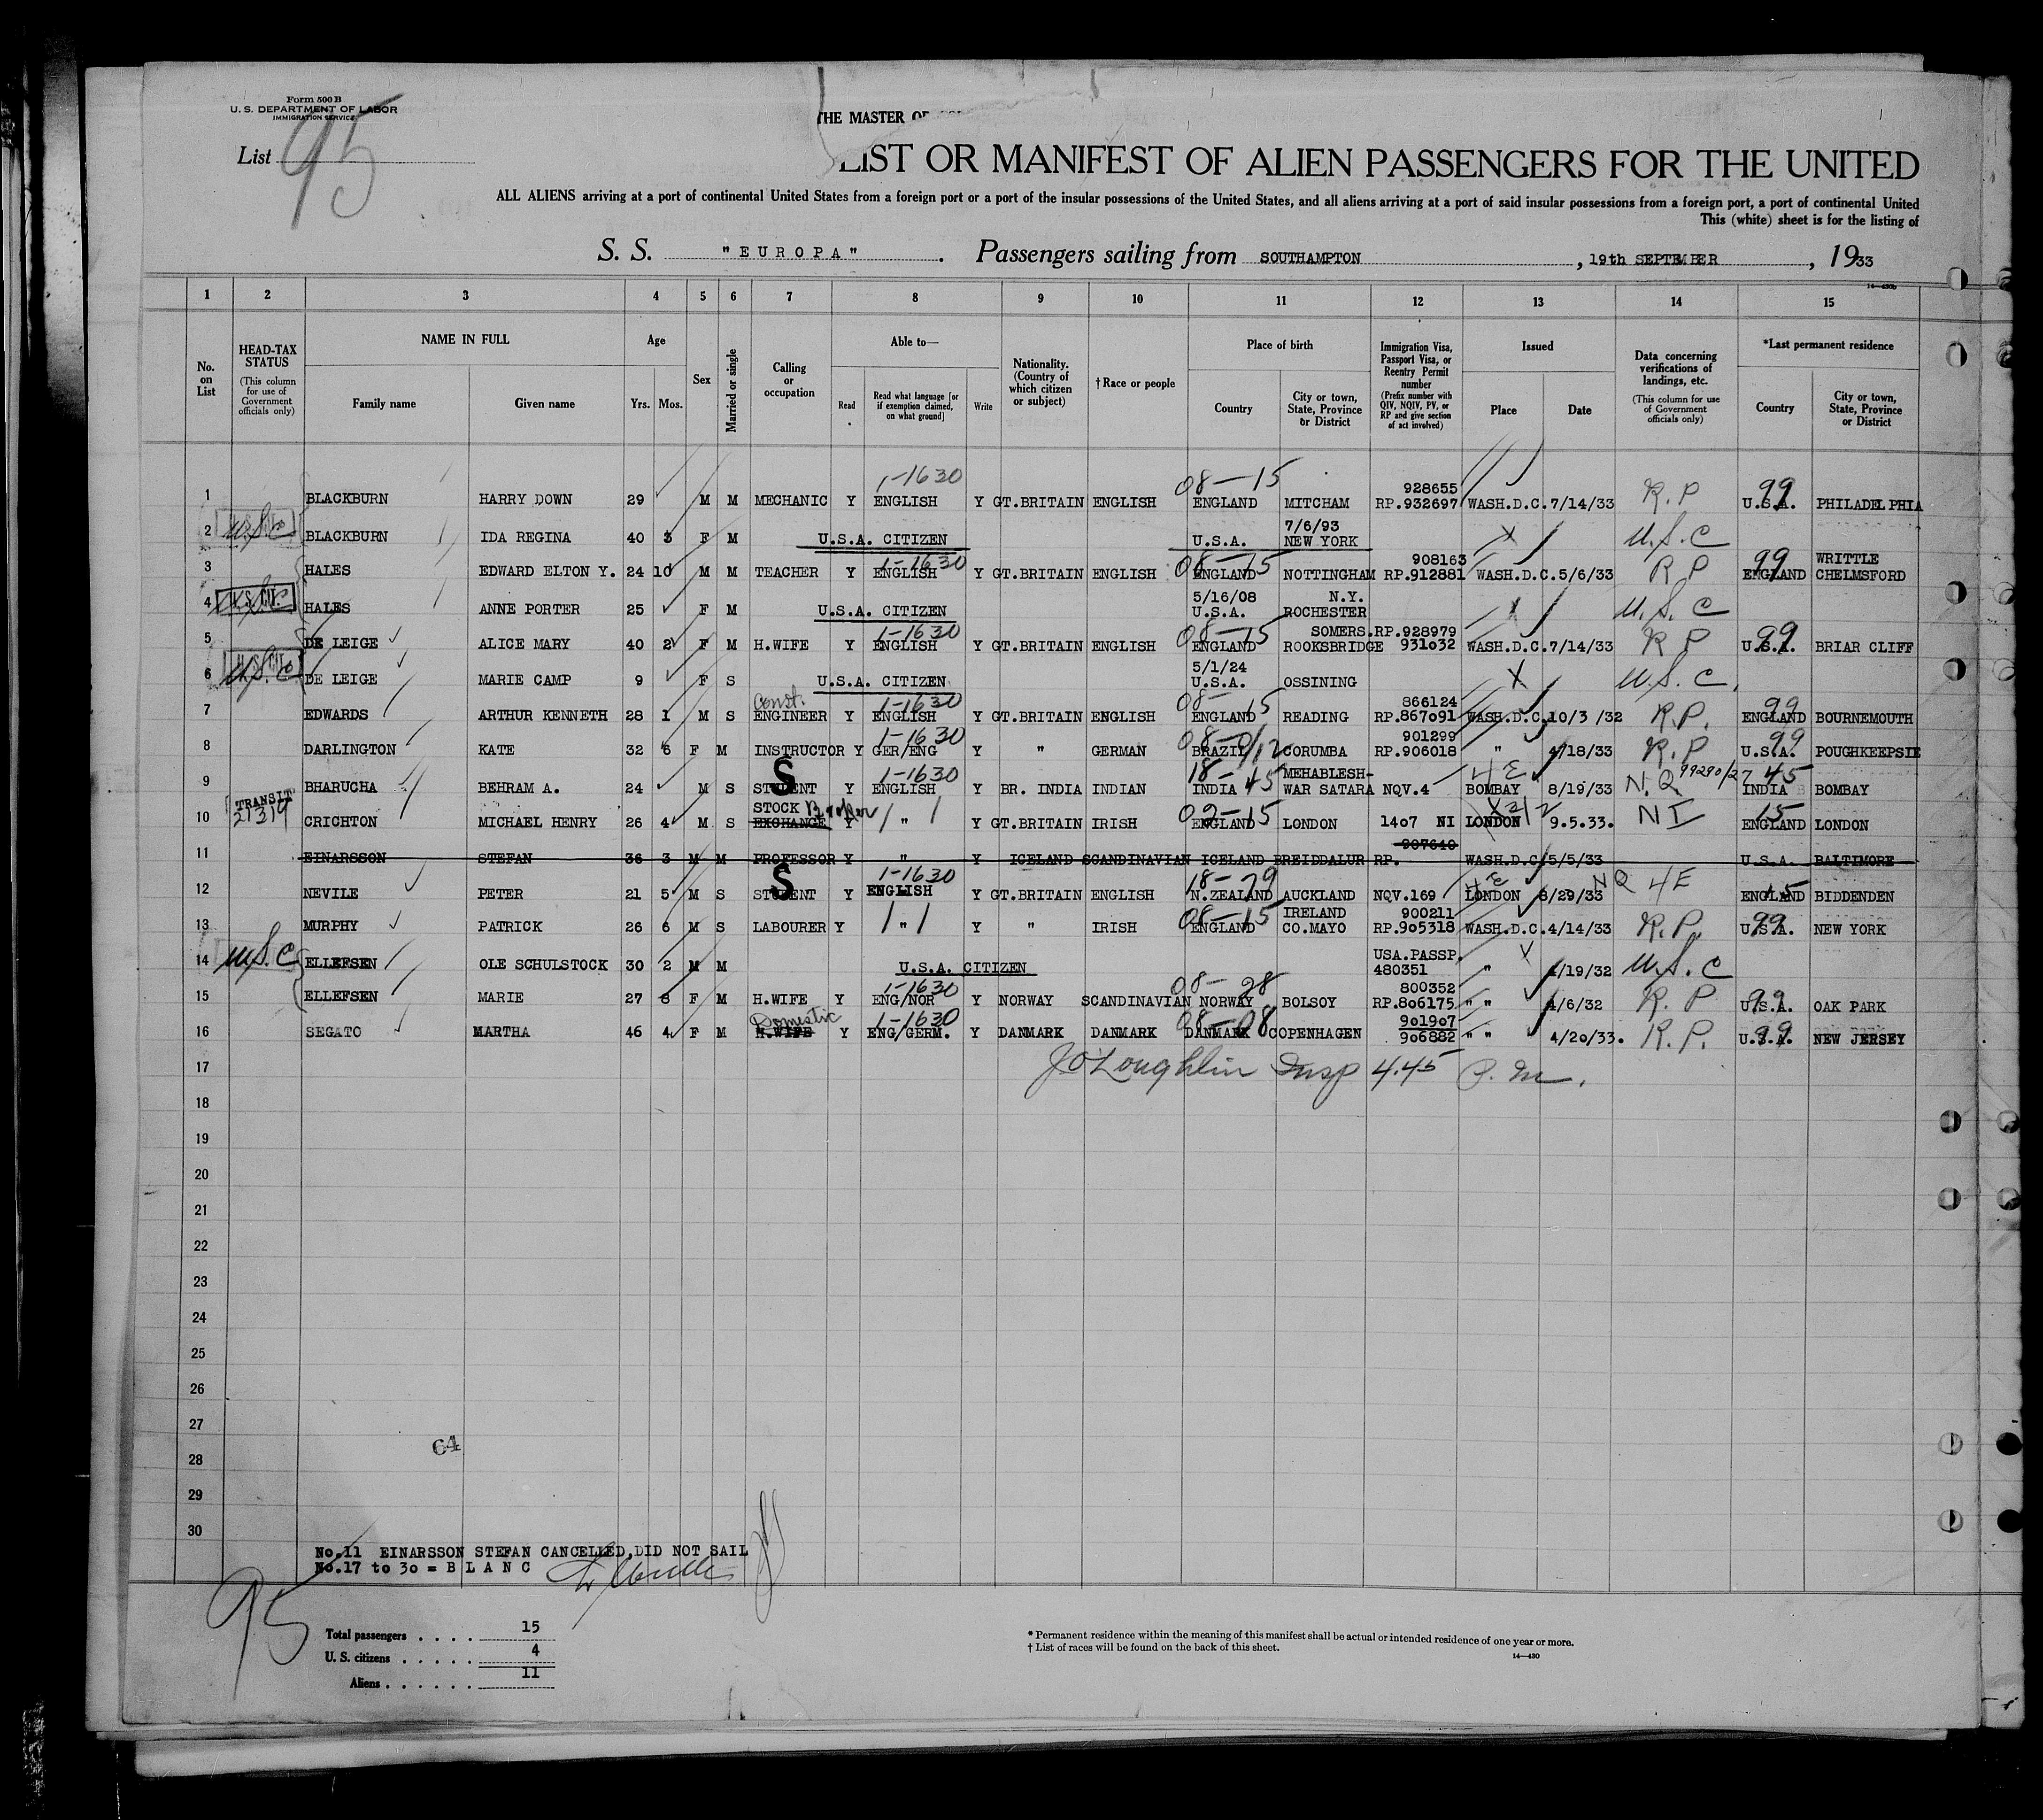 Form 500 B
U. S. DEPARTMENT OF LABOR
IMMIGRATION SERVICE
THE MASTER OF
List 95
LIST OR MANIFEST OF ALIEN PASSENGERS FOR THE UNITED
ALL ALIENS arriving at a port of continental United States from a foreign port or a port of the insular possessions of the United States, and all aliens arriving at a port of said insular possessions from a foreign port, a port of continental United
This (white) sheet is for the listing of
S. S. "EUROPA". Passengers sailing from SOUTHAMPTON, 19th SEPTEMBER, 1933
14—430b
1 2 3 4 5 6 7 8 9 10 11 12 13 14 15
No. on List
HEAD-TAX STATUS (This column for use of Government officials only)
NAME IN FULL Family name Given name
Age Yrs. Mos.
Sex
Married or single
Calling or occupation
Able to— Read Read what language [or if exemption claimed, on what ground] Write
Nationality. (Country of which citizen or subject)
† Race or people
Place of birth Country City or town, State, Province or District
Immigration Visa, Passport Visa, or Reentry Permit number (Prefix number with QIV, NQIV, PV, or RP and give section of act involved)
Issued Place Date
Data concerning verifications of landings, etc. (This column for use of Government officials only)
*Last permanent residence Country City or town, State, Province or District
1-1630 08-15 928655 99
1 BLACKBURN HARRY DOWN 29 M M MECHANIC Y ENGLISH Y GT.BRITAIN ENGLISH ENGLAND MITCHAM RP.932697 WASH.D.C. 7/14/33 R.P U.S.A. PHILADELPHIA
7/6/93
2 U.S.C BLACKBURN IDA REGINA 40 3 F M U.S.A. CITIZEN U.S.A. NEW YORK X U.S.C
1-1630 08-15 908163 99 WRITTLE
3 HALES EDWARD ELTON Y. 24 10 M M TEACHER Y ENGLISH Y GT.BRITAIN ENGLISH ENGLAND NOTTINGHAM RP.912881 WASH.D.C. 5/6/33 R P ENGLAND CHELMSFORD
5/16/08 N.Y.
4 HALES ANNE PORTER 25 F M U.S.A. CITIZEN U.S.A. ROCHESTER X U.S.C
1-1630 08-15 SOMERS. RP.928979 99
5 DE LEIGE ALICE MARY 40 2 F M H.WIFE Y ENGLISH Y GT.BRITAIN ENGLISH ENGLAND ROOKSBRIDGE 931032 WASH.D.C. 7/14/33 R P U.S.A. BRIAR CLIFF
5/1/24
6 U.S.C DE LEIGE MARIE CAMP 9 F S U.S.A. CITIZEN U.S.A. OSSINING X U.S.C.
Const. 1-1630 08-15 866124 99
7 EDWARDS ARTHUR KENNETH 28 1 M S ENGINEER Y ENGLISH Y GT.BRITAIN ENGLISH ENGLAND READING RP.867091 WASH.D.C. 10/3 /32 R.P. ENGLAND BOURNEMOUTH
1-1630 901299 99
8 DARLINGTON KATE 32 6 F M INSTRUCTOR Y GER/ENG Y " GERMAN BRAZIL CORUMBA RP.906018 " 4/18/33 R.P U.S.A. POUGHKEEPSIE
S 1-1630 18-45 MEHABLESH- 4E 99290/27 45
9 BHARUCHA BEHRAM A. 24 M S STUDENT Y ENGLISH Y BR. INDIA INDIAN INDIA WAR SATARA NQV.4 BOMBAY 8/19/33 N.Q INDIA BOMBAY
TRANSIT 21319 STOCK Broker 02-15 15
10 CRICHTON MICHAEL HENRY 26 4 M S EXCHANGE Y " Y GT.BRITAIN IRISH ENGLAND LONDON 1407 NI LONDON 9.5.33. NI ENGLAND LONDON
907640
11 EINARSSON STEFAN 36 3 M M PROFESSOR Y " Y ICELAND SCANDINAVIAN ICELAND BREIDDALUR RP. WASH.D.C. 5/5/33 U.S.A. BALTIMORE
S 1-1630 18-29 4E NQ 4E 15
12 NEVILE PETER 21 5 M S STUDENT Y ENGLISH Y GT.BRITAIN ENGLISH N.ZEALAND AUCKLAND NQV.169 LONDON 8/29/33 ENGLAND BIDDENDEN
08-15 IRELAND 900211 99
13 MURPHY PATRICK 26 6 M S LABOURER Y " Y " IRISH ENGLAND CO.MAYO RP.905318 WASH.D.C. 4/14/33 R.P. U.S.A. NEW YORK
USA.PASSP.
14 U.S.C ELLEFSEN OLE SCHULSTOCK 30 2 M M U.S.A. CITIZEN 480351 " 4/19/32 U.S.C
1-1630 08-28 800352 99
15 ELLEFSEN MARIE 27 8 F M H.WIFE Y ENG/NOR Y NORWAY SCANDINAVIAN NORWAY BOLSOY RP.806175 " " 4/6/32 R.P U.S.A. OAK PARK
Domestic 1-1630 08-08 901907 99
16 SEGATO MARTHA 46 4 F M H.WIFE Y ENG/GERM. Y DANMARK DANMARK DANMARK COPENHAGEN 906882 " " 4/20/33. R.P. U.S.A. NEW JERSEY
17 J O'Loughlin Insp 4.45 P.M.
18
19
20
21
22
23
24
25
26
27
64
28
29
30
No.11 EINARSSON STEFAN CANCELLED,DID NOT SAIL
No.17 to 30 = B L A N C
95
Total passengers . . . . 15
U. S. citizens . . . . . 4
Aliens . . . . . . 11
* Permanent residence within the meaning of this manifest shall be actual or intended residence of one year or more.
† List of races will be found on the back of this sheet.
14—430